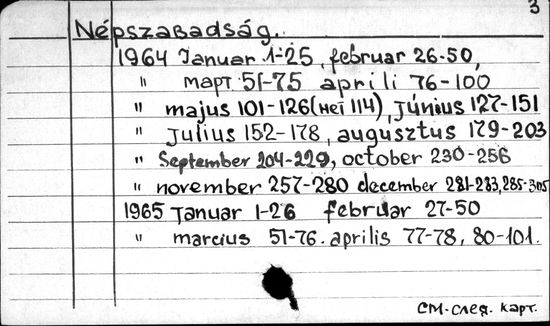 3
Népszabadság.
1964 Januar 1-25, februar 26-50,
" март 51-75 aprili 76-100
" majus 101-126(нет 114), Június 127-151
" Julius 152-178, augusztus 179-203
" September 204-229, october 230-256
" november 257-280 december 281-283,285-305
1965 Januar 1-26 februar 27-50
" marcius 51-76. aprilis 77-78, 80-101.
см. след. карт.